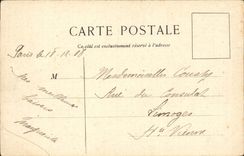 CARTE POSTALE
Ce côté est exclusivement réservé à l'adresse
Paris le 18.12.08
M Mesdemoiselles
Rue du Consulat
Limoges
Hte Vienne
mes meilleurs